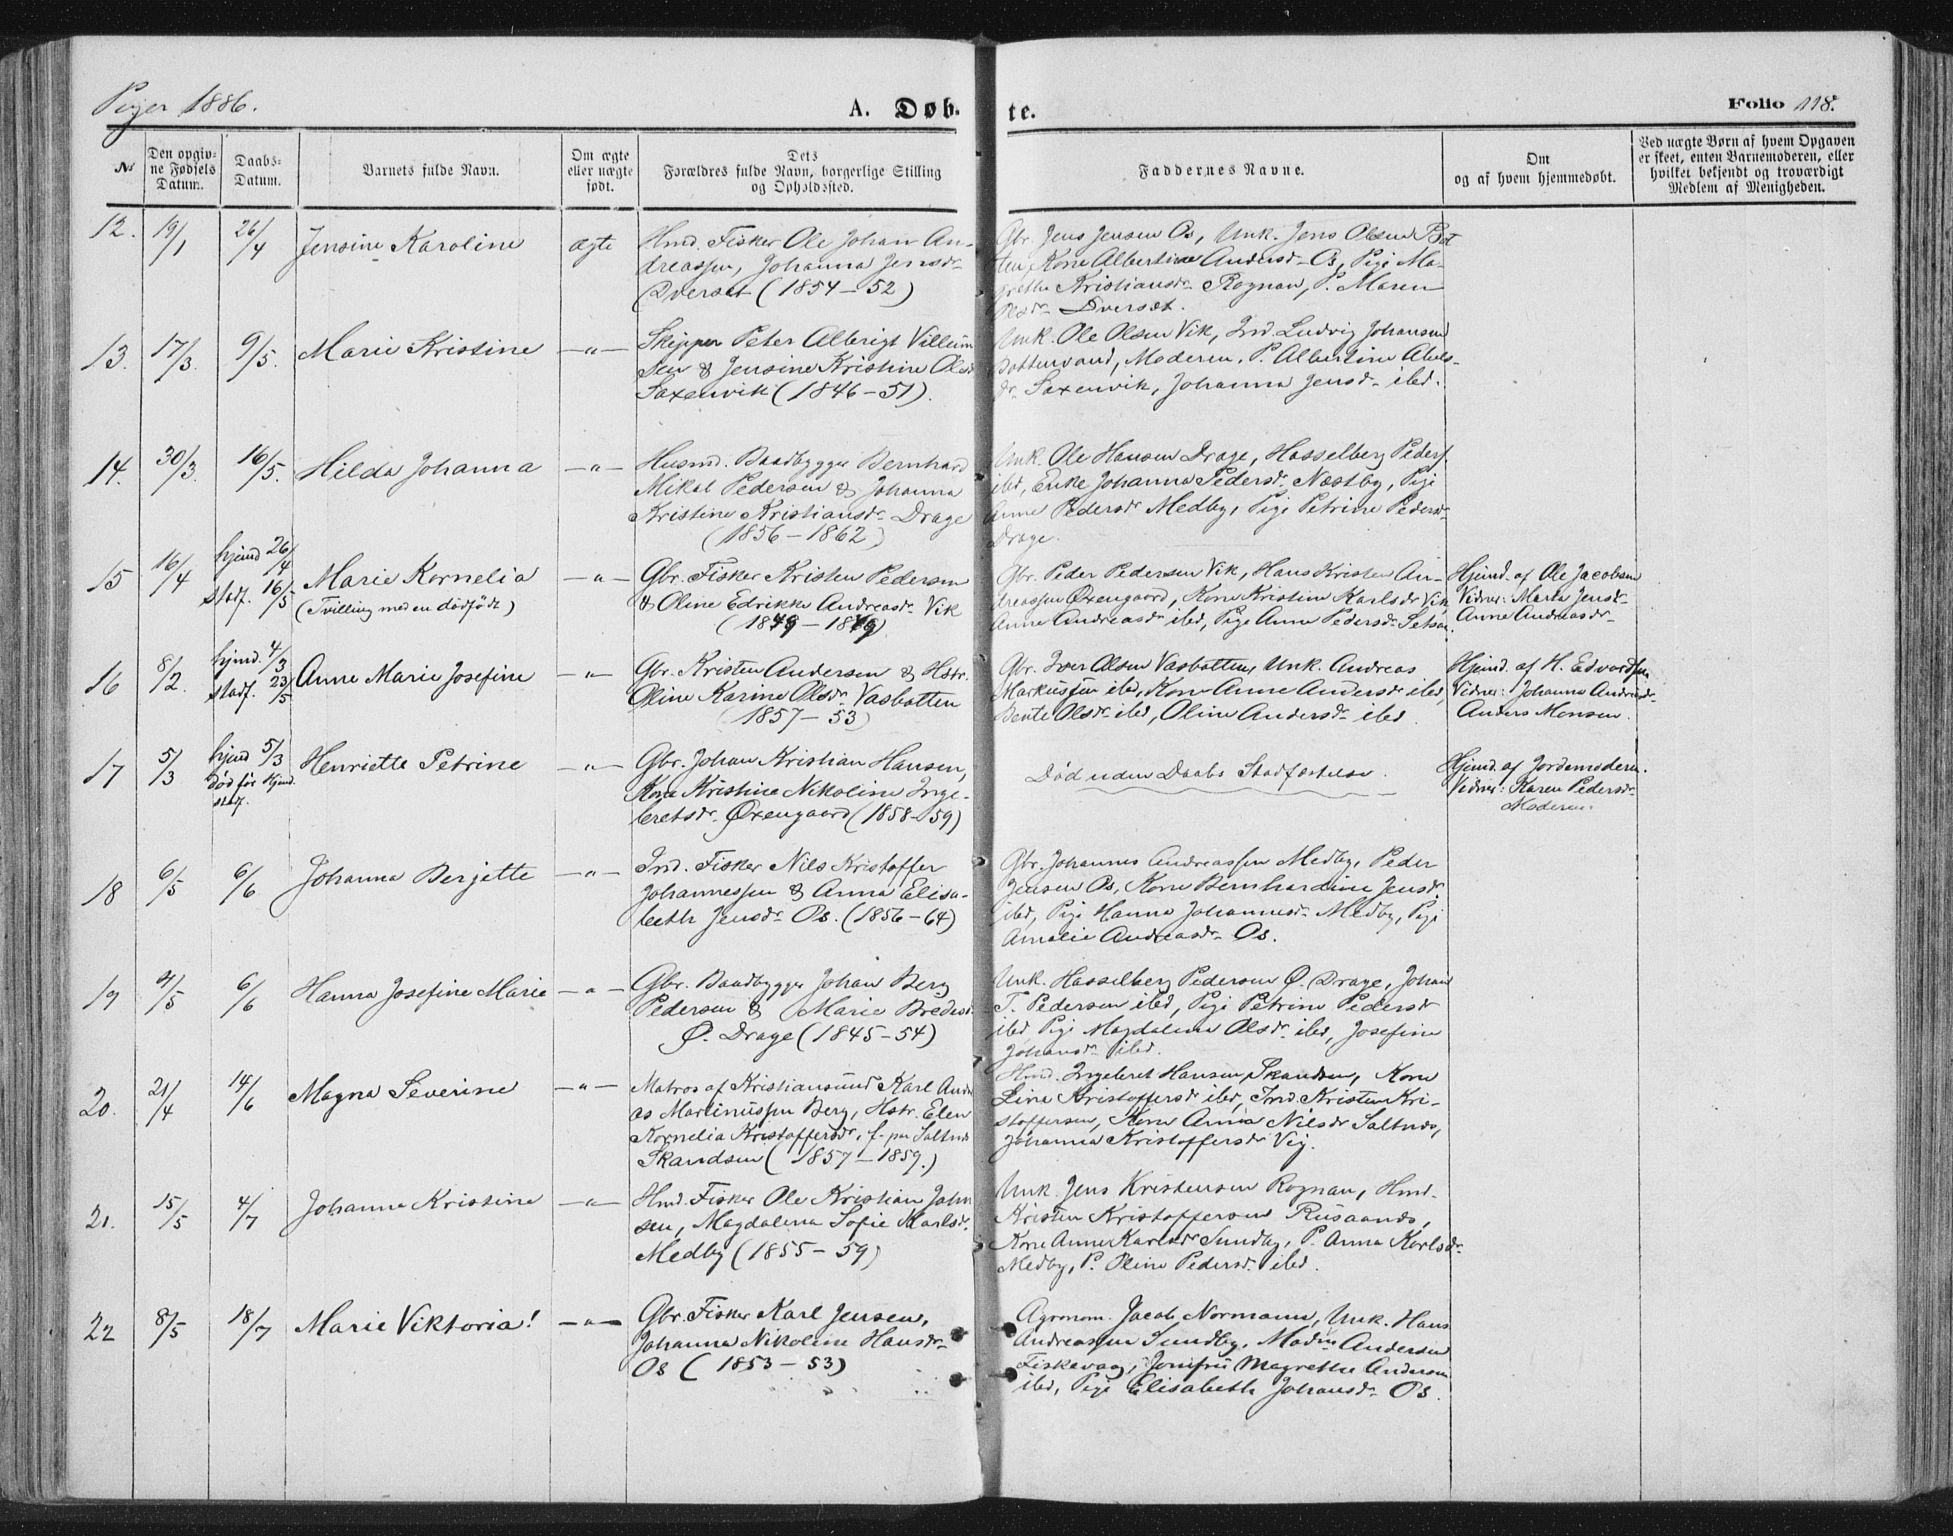 Piger 1886.
A. Døb-
te.
Folio 118.
No
Den opgiv-
ne Fødsels
Datum.
Daabs-
Datum.
Barnets fulde Navn.
Om ægte
eller uægte
født.
Dets
Forældres fulde Navn, borgerlige Stilling
og Opholdssted.
Faddernes Navne.
Om
og af hvem hjemmedøbt.
Ved uægte Børn af hvem Opgaven
er skeet, enten Barnemoderen, eller
hvilket bekjendt og troværdigt
Medlem af Menigheden.
12. 19/1 26/4 Jensine Karoline ægte
Hmd. Fisker Ole Johan An-
dreassen, Johanna Jensdr
Dverset (1854-52)
Gbr. Jens Jensen Os, Unk. Jens Olsen Bot
ten, Kone Albertine Andersdr Os, Pige Ma-
grethe Kristiansdr Rognan, P. Maren
Olsdr Dverset.
13. 17/3. 9/5. Marie Kristine -"-
Skipper Peter Albrigt Villum
sen & Jensine Kristine Olsd
Saxenvik (1846-51).
Unk. Ole Olsen Vik, Ind. Ludvig Johansen
Bottenvand, Moderen, P. Albertine Abels-
dr Saxenvik, Johanna Jensdr ibd.
14. 30/3. 16/5. Hilda Johanna -"-
Husmd. Baadbygger Bernhard
Mikal Pedersen & Johanna
Kristine Kristiansdr Drage
(1856-1862)
Unk. Ole Hansen Drage, Hasselberg Peders.
ibd, Enke Johanna Pedersdr Næstby, Pige
Anne Pedersdr Medby, Pige Petrine Pedersdr
Drage.
15 16/4 hjemd 26/4
stadf. 16/5 Marie Kornelia -"-
(Tvilling med en dødfødt)
Gbr. Fisker Kristen Pedersen
& Oline Edrikke Andreasdr Vik
(1849-1849)
Gbr. Peder Pedersen Vik, Hans Kristen An-
dreassen Øxengaard, Kone Kristine Karlsdr Vik,
Anne Andreasdr ibd, Pige Anne Pedersdr Setsaa.
Hjemd. af Ole Jacobsen
Vidner: Marta Jensdr
Anne Andreasdr
16 8/2. hjemd. 4/3
stadf. 23/5 Anne Marie Josefine -"-
Gbr. Kristen Andersen & Hstr.
Oline Karine Olsdr Vasbotten
(1857-53)
Gbr. Iver Olsen Vasbotten, Unk. Andreas
Markussen ibd, Kone Anne Andersdr ibd,
Bente Olsdr ibd, Oline Andersdr ibd.
Hjemd. af H. Edvardsen
Vidner: Johanna Andreasdr
Anders Monsen.
17 5/3 hjemd 5/3
død før Hjemd
stadf. Henriette Petrine -"-
Gbr. Johan Kristian Hansen,
Kone Kristine Nikoline Inge-
bretsdr. Øxengaard (1858-59)
Død uden Daabs Stadfæstelse.
Hjemd. af Jordemoderen.
Vidner: Karen Pedersdr
Moderen.
18 6/5 6/6 Johanna Berjette -"-
Ind. Fisker Nils Kristoffer
Johannessen & Anna Elisa-
beth Jensdr Os. (1856-64)
Gbr. Johannes Andreassen Medby, Peder
Jensen Os, Kone Bernhardine Jensdr
ibd, Pige Hanna Johannesdr Medby, Pige
Amalie Andreasdr Os.
19 4/5 6/6 Hanna Josefine Marie -"-
Gbr. Baadbygger Johan Berg
Pedersen & Marie Bredesd
Ø. Drage (1845-54)
Unk. Hasselberg Pedersen Ø. Drage, Johan
T. Pedersen ibd, Pige Petrine Pedersdr
ibd Pige Magdalena Olsdr ibd, Josefine
Johansdr ibd.
20. 21/4 14/6 Magna Severine -"-
Matros af Kristiansund Karl Andre
as Martinussen Berg, Hstr. Elen
Kornelia Kristoffersdr, f. pr Saltnes
Skandsen (1857-1859.)
Hmd. Ingebret Hansen Skandsen, Kone
Line Kristoffersdr ibd, Ind. Kristen Kri-
stoffersen, Kone Anna Nilsdr Saltnes,
Johanna Kristoffersdr Vig.
21. 15/5 4/7 Johanna Kristine -"-
Hmd. Fisker Ole Kristian John
sen, Magdalena Sofie Karlsdr.
Medby (1855-59)
Unk. Jens Kristensen Rognan, Hmd.
Kristen Kristoffersen Rusaanes,
Kone Anne Karlsdr Sundby, P. Anna Karlsdr
Medby, P. Oline Pedersdr ibd.
22 8/5 18/7 Marie Viktoria! -"-
Gbr. Fisker Karl Jensen,
Johanna Nikoline Hansdr
Os (1853-53)
Agronom. Jacob Normann, Unk. Hans
Andreassen Sundby, Madm Andersen
Fiskevaag, Jomfru Magrethe Andersen
ibd, Pige Elisabeth Johansdr Os.